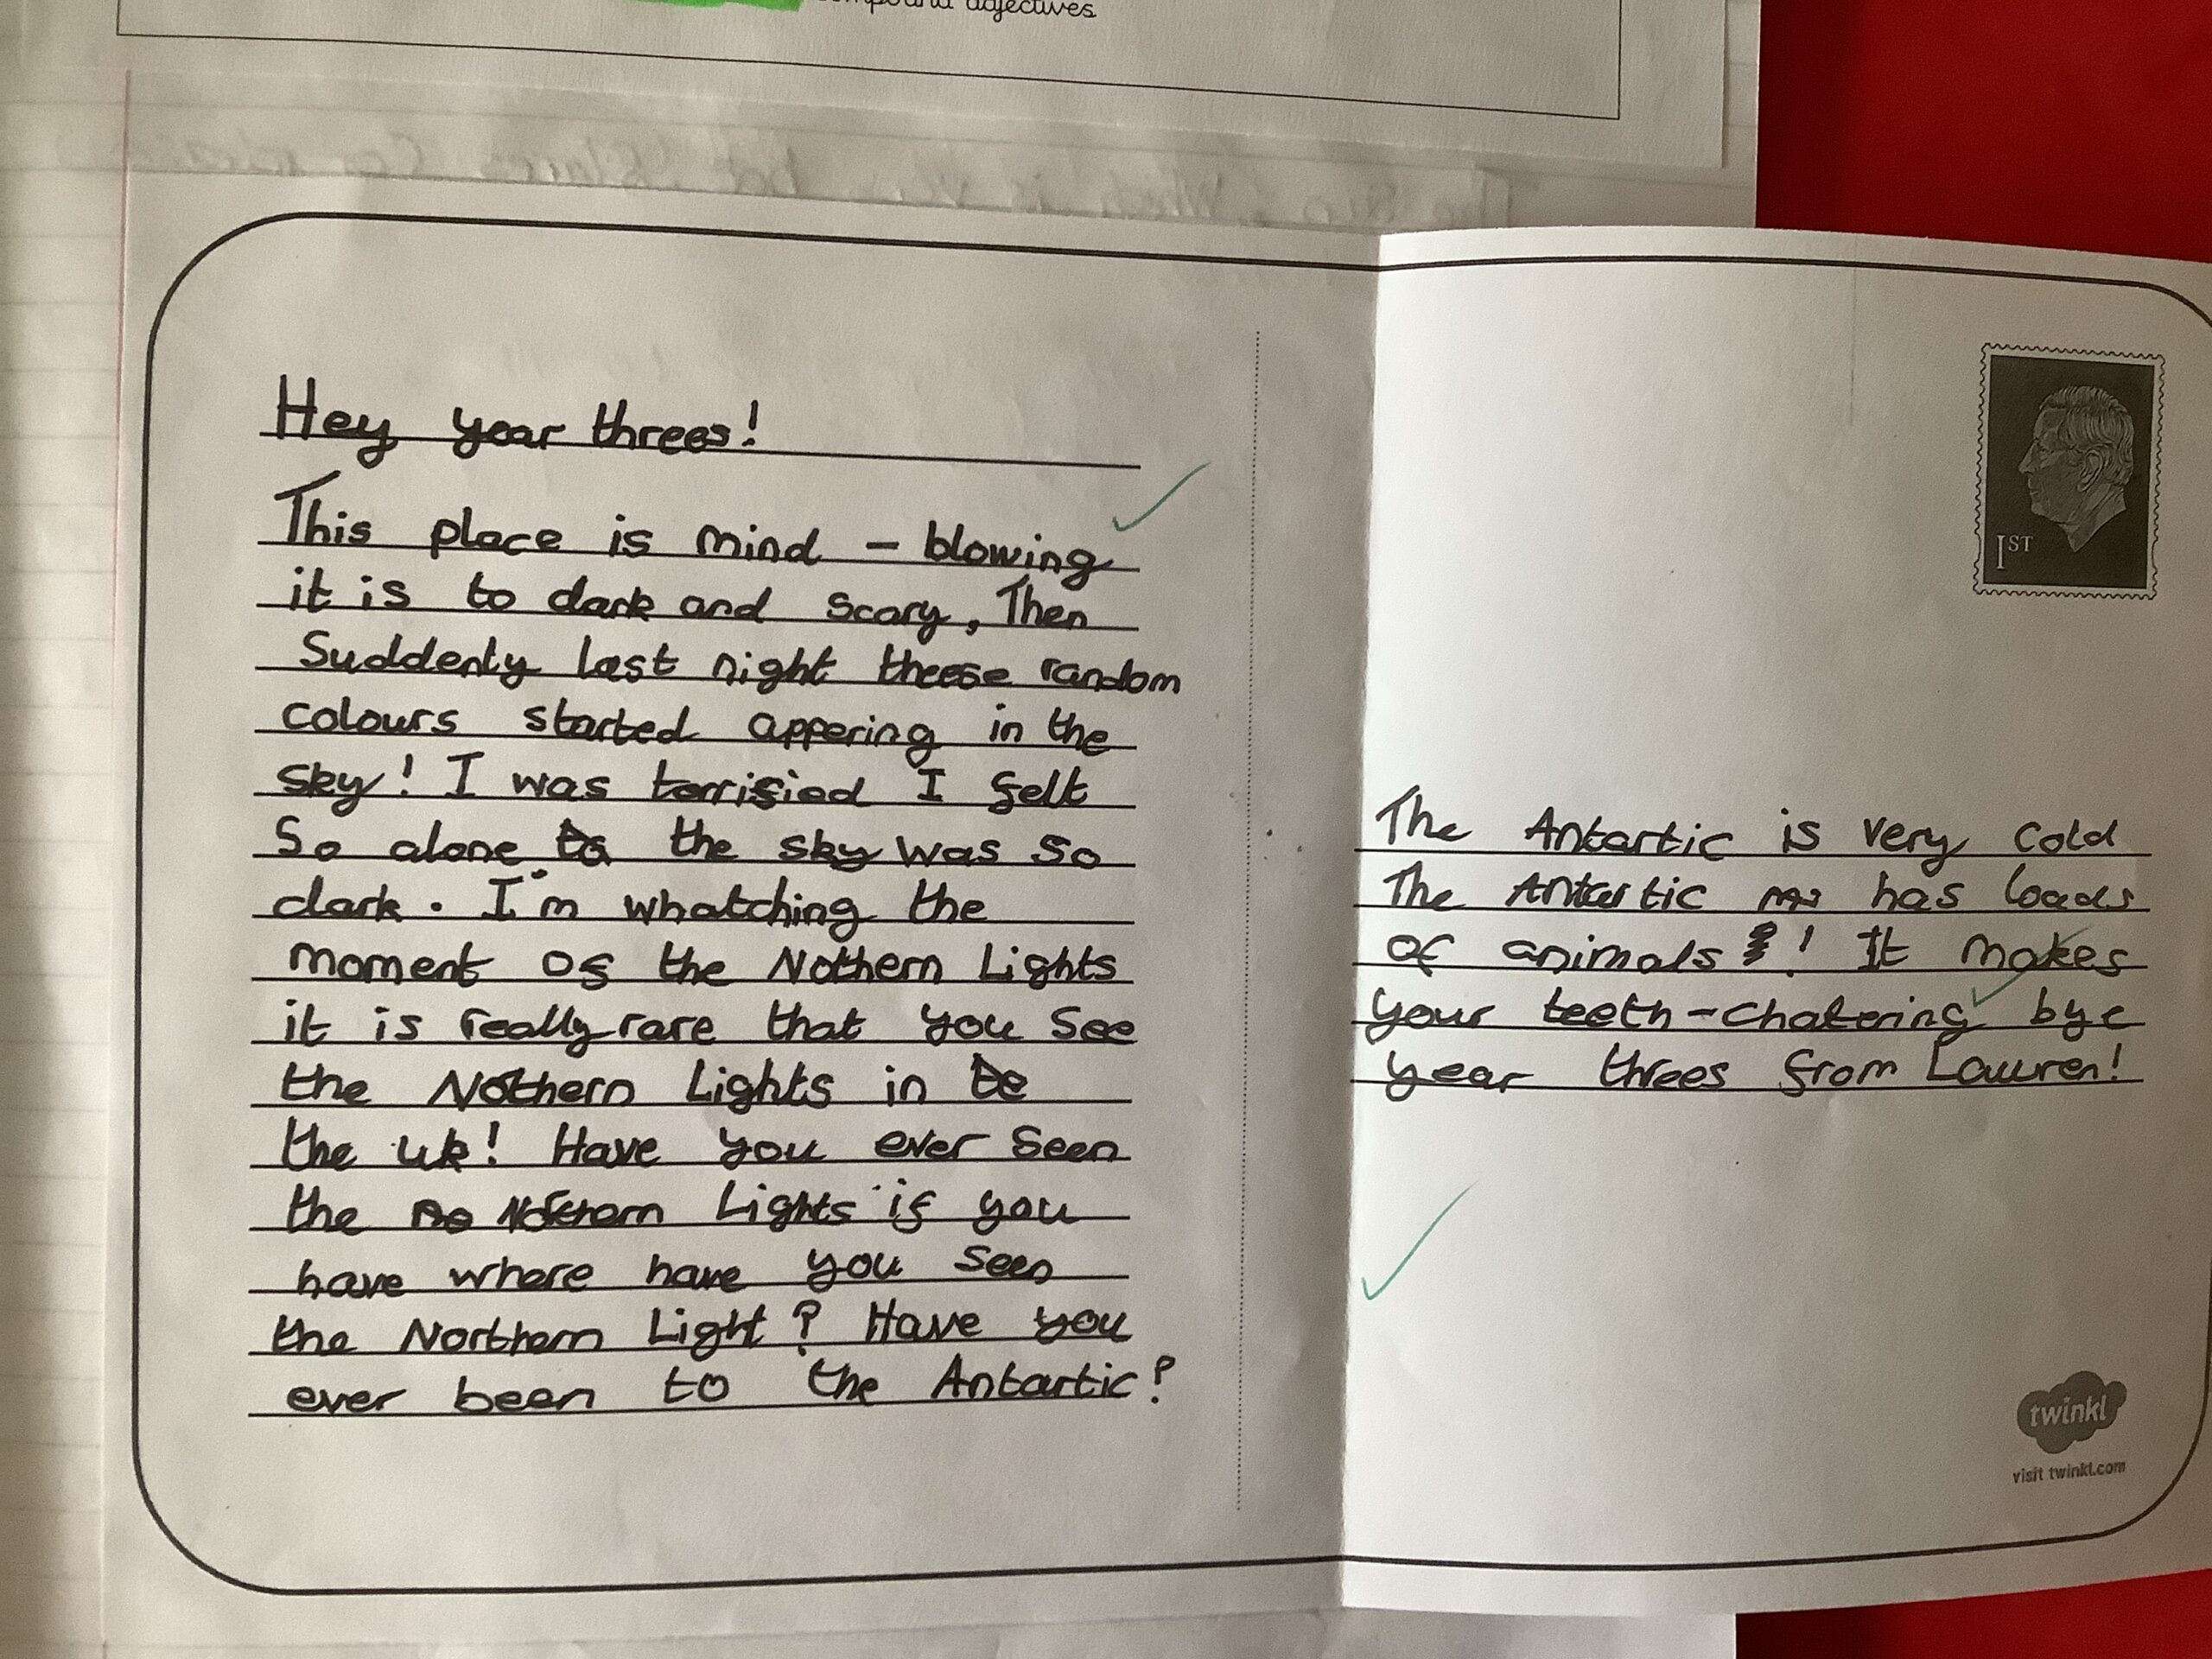 compound adjectives
Hey year threes!
This place is mind - blowing
it is to dark and scary, Then
Suddenly last night theese random
colours started appering in the
sky! I was terrified I felt
So alone the sky was so
dark. I'm whatching the
moment of the Nothern Lights
it is really rare that you see
the Nothern Lights in
the uk! Have you ever seen
the Nothern Lights if you
have where have you seen
the Northern Light? Have you
ever been to the Antartic?
1ST
The Antartic is very cold
The Antartic has loads
of animals! It makes
your teeth-chatering bye
year threes from Lauren!
twinkl
visit twinkl.com